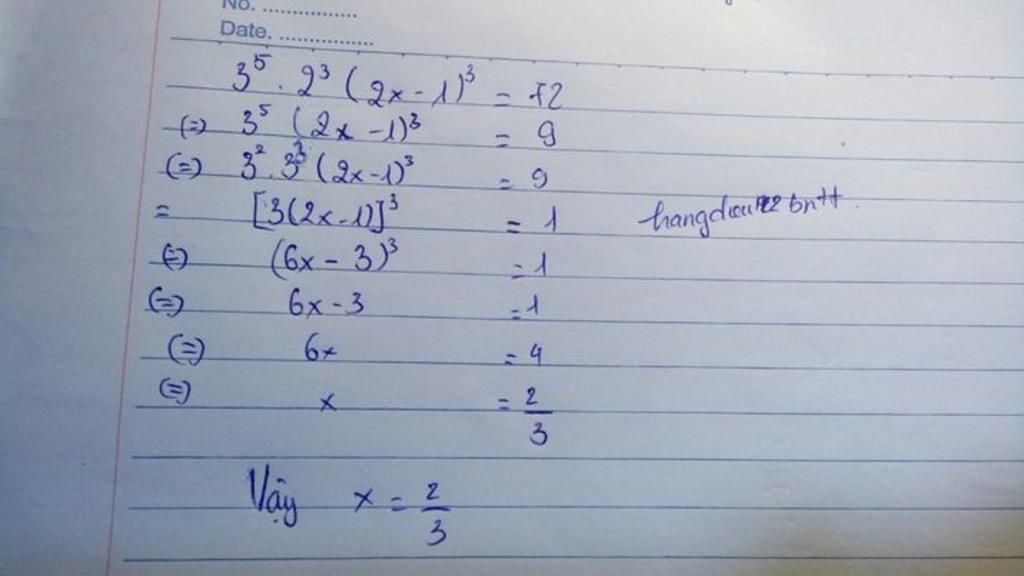 No. ................
Date. ................
3⁵ . 2³ (2x - 1)³ = 72
(=) 3⁵ (2x - 1)³ = 9
(=) 3² . 3³ (2x - 1)³ = 9
= [3(2x - 1)]³ = 1
(=) (6x - 3)³ = 1
(=) 6x - 3 = 1
(=) 6x = 4
(=) x = 2/3
Vậy x = 2/3